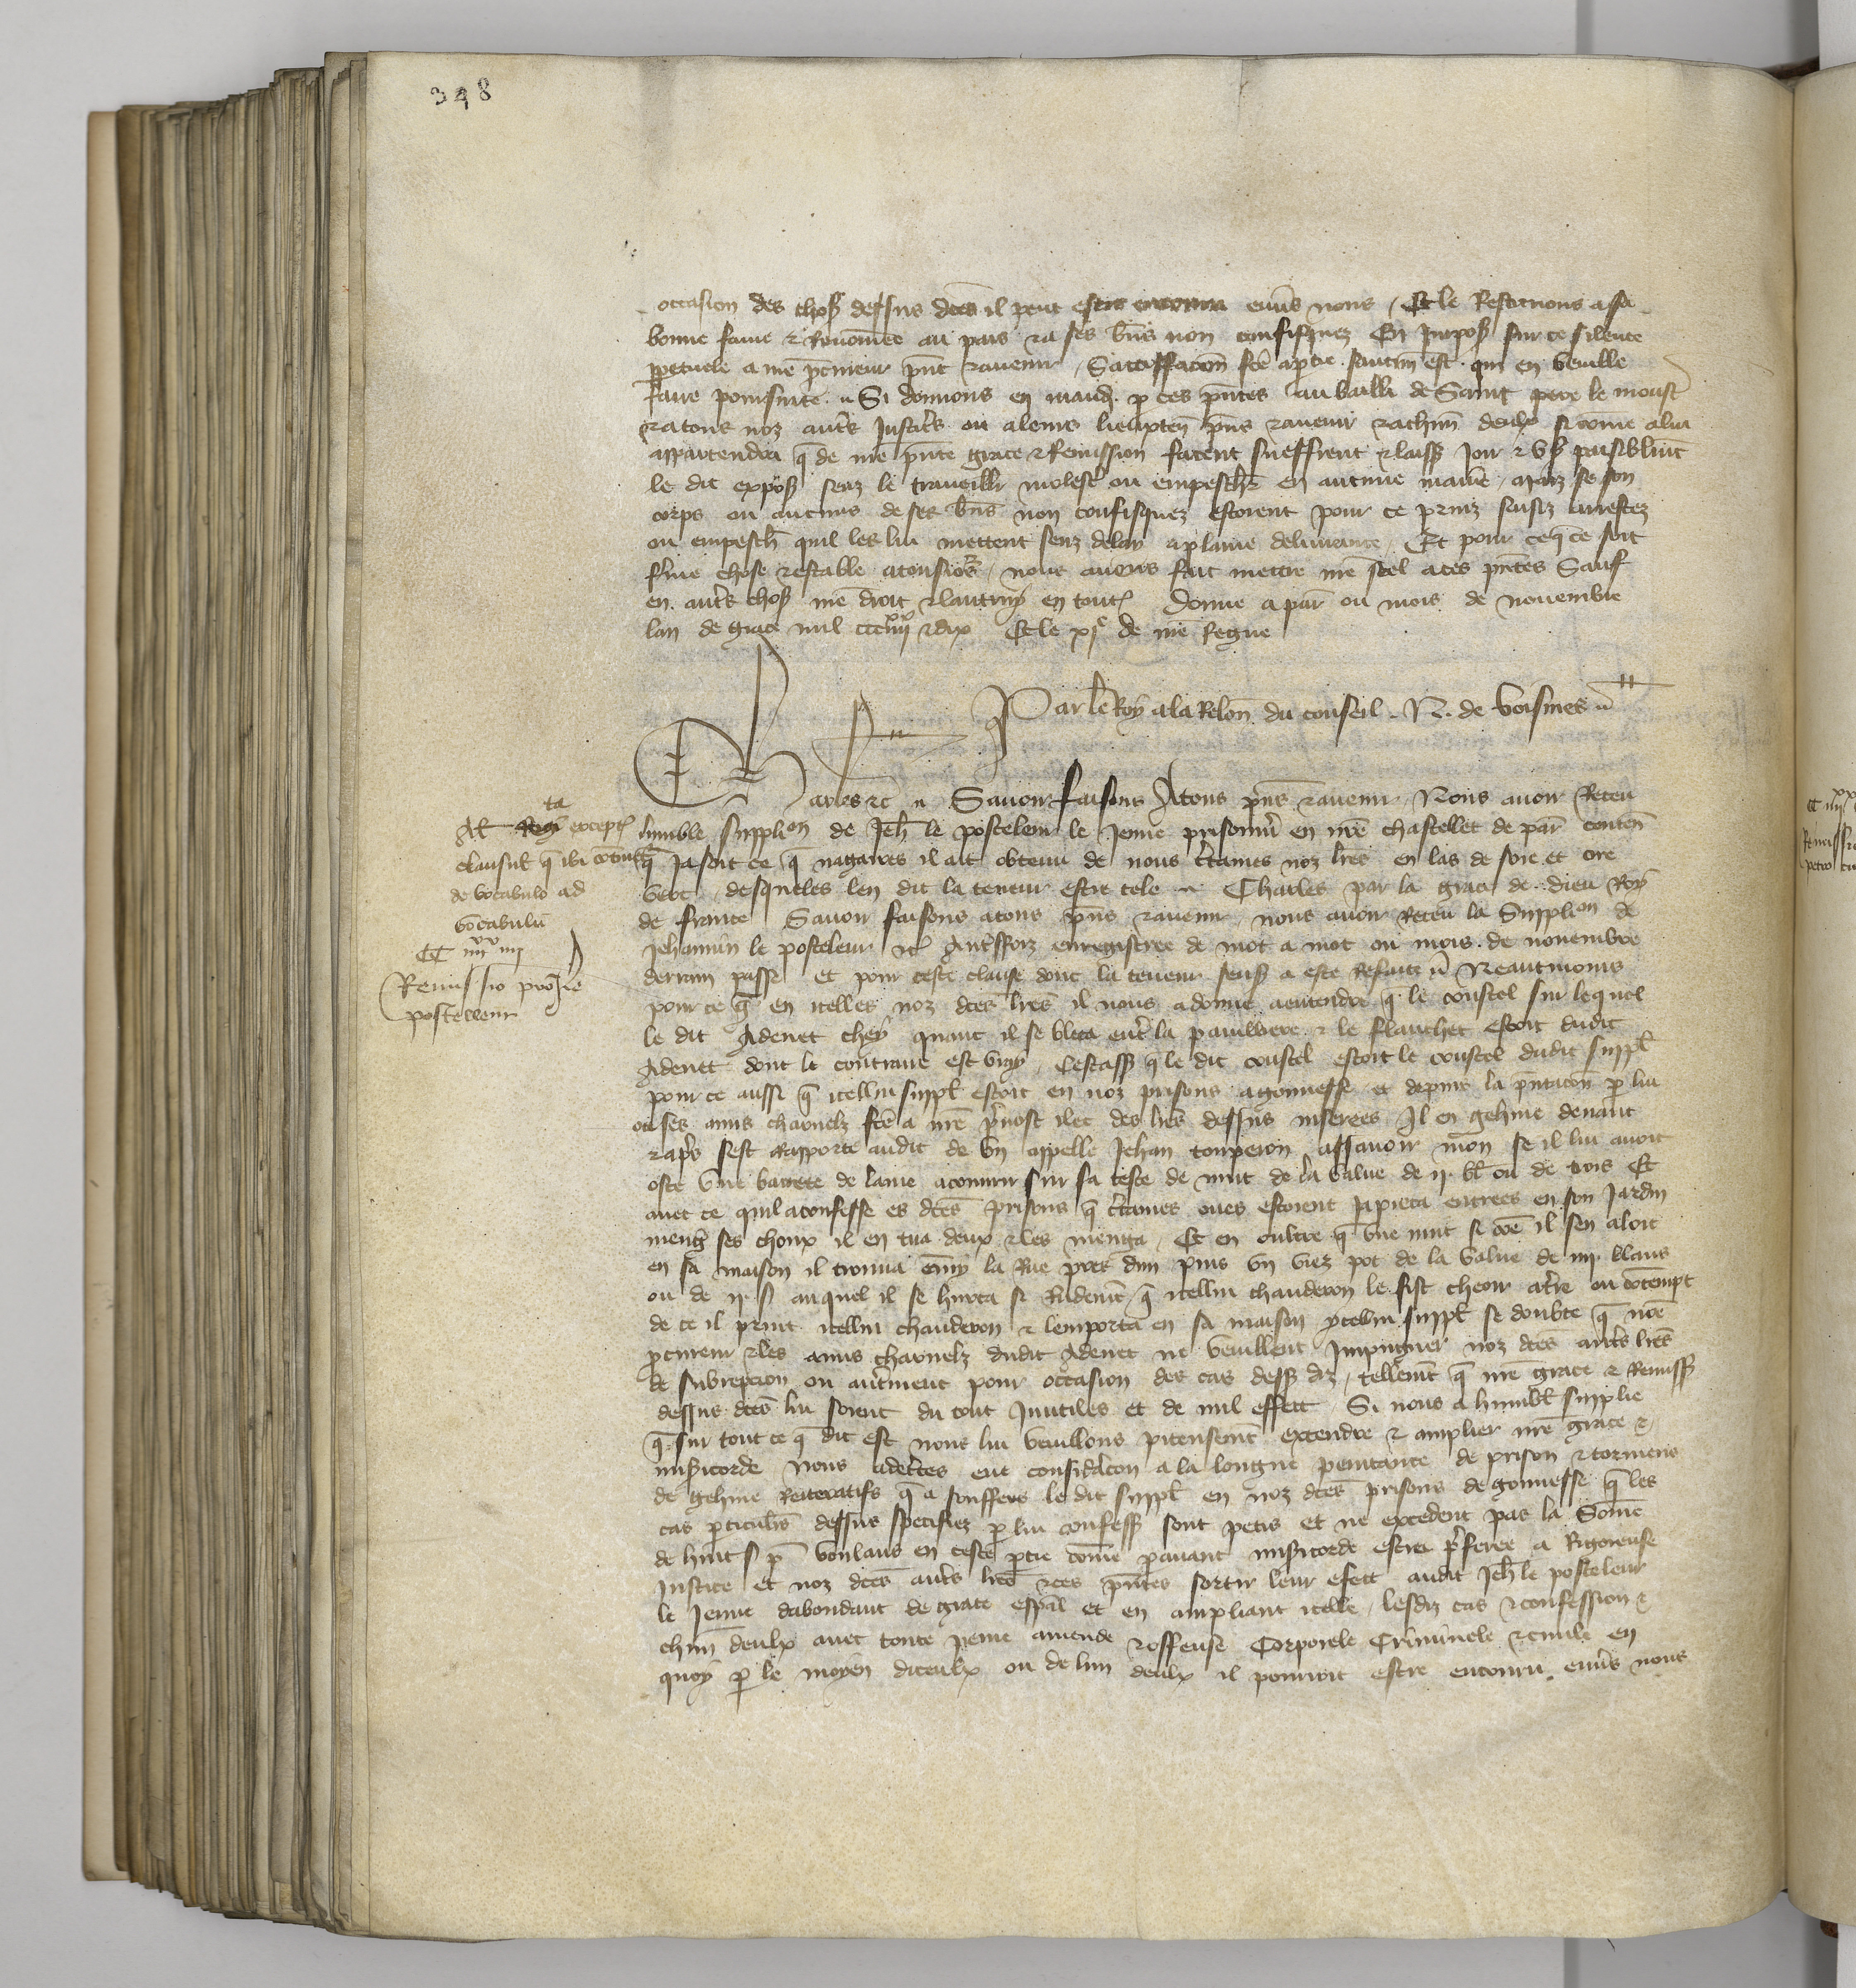 348
occasion des choses dessus dces il peut estre encouru envs nous / Et le Restituons a sa
bonne fame & Renommee au pais & a ses bns non confisquez En Impost sur ce silence
ppetuele a nre pcureur pnt & avenir / Satisfacon fce a ptie. sautrem est. qui en veuille
faire poursuite. Si donnons en mand. p ces pntes au bailli de Saint pere le moust
& a tous noz autrs Justicrs ou a leurs lieuxten pns & avenir & a chun deulx si come a lui
appartendra q de nre pnte grace & Remission facent sueffrent & laisst Joir & Us paisiblemt
le dit expost senz le travailler molest ou empeschr en aucune maniere / maiz se son
corps ou aucuns de ses bns non confisquez estoient pour ce prins saisiz arrestez
ou empesch quil les lui mettent senz delay a plaine delivrance. Et pour ce q ce soit
ferme chose & estable a tousiors / nous avons fait mettre nre scel a ces pntes Sauf
en autrs chos nre droit & lautruy en tout Donne a par ou mois de novembre
lan de grace mil ccc iiiixx & dix Et le xje de nre Regne
Par le Roy a la Relon du conseil. N. de voisines
Charles &c Savoir faisons A tous pns & avenir Nous avoir Receu
lumble supplion de Jeh le posteleur le Jeune prisonnr en nre chastellet de par conten
q Ja soit ce q nagaires il ait obtenu de nous crtaines noz lres en las de soie et cire
vert / desqueles len dit la teneur estre tele Charles par la grace de dieu Roy
de france Savoir faisons a tous pns & avenir / nous avoir Receu la Supplion de
Jehannin le posteleur &c enregistree de mot a mot ou mois de novembre
derrain passe et pour ceste clause dont la teneur sens a este Refaite Neantmoins
pour ce q en icelles noz dces lres il nous a donne a entendre q le coustel sur lequel
le dit Adenet chey quant il se bleca entr la pauliere & le flanchet estoit dudit
Adenet dont le contraire est vray / Cestass q le dit coustel estoit le coustel dudit suppl
pour ce aussi q icellui suppl estoit en noz prisons a gonnesse et depuis la pntacon p lui
ou ses amis charnelz fce a nre prvost ilec des lres dessus inserees Il en gehine devant
& aprs sest Rapporte audit de un appelle Jehan touperon assavoir mon se il lui avoit
oste une barrete de laine a couvrir sur sa teste de nuit de la value de ij. bl ou de trois Et
avec ce quil a confesse es dces prisons q crtaines oues estoient Ja pieca entrees en son Jardin
meng ses choux il en tua deux & les menga / Et en oultre q une nuit si come il sen aloit
en sa maison il trouva emmy la Rue pres dun puis un viez pot de la value de iiij. blans
ou de ij. s auquel il se hurta si Rudemt q icellui chauderon le fist cheoir a tre ou contempt
de ce il print icellui chauderon & lemporta en sa maison ycellui suppl se doubte q nre
pcureur & les amis charnelz dudit Adenet ne veuillent Impugner noz dces autrs lres
de subrepcion ou autrment pour occasion des cas dess diz / tellemt q nre grace & Remiss
dessus dces lui soient du tout Inutiles et de nul effect. Si nous a humblt supplie
q sur tout ce q dit est nous lui veuillons piteusemt extendre & amplier nre grace &
misicorde Nous adcertes eue consideracon a la longue penitance de prison & tormens
de gehine Reiteratifs q a souffers le dit suppl en noz dces prisons de gonnesse q les
cas pticulrs dessus specifiez p lui confess sont petis et ne excedent pas la Some
de huit s p voulans en ceste ptie come pavant misicorde estre prferee a Rigoreuse
Justice et noz dces autrs lres & ces pntes sortir leur effect audit Jeh le posteleur
le Jeune dabondant de grace espal et en ampliant icelle / lesdiz cas & confession &
chun deulx avec toute peine amende & offense Corporele Criminele & civile en
quoy p le moyen diceulx ou de lun deulx il pourroit estre encouru envs nous
exceptis
clausul q ibi continet
de vocabulo ad
vocabulu
CC iiiixx iiij
Remissio pro Je
posteleur